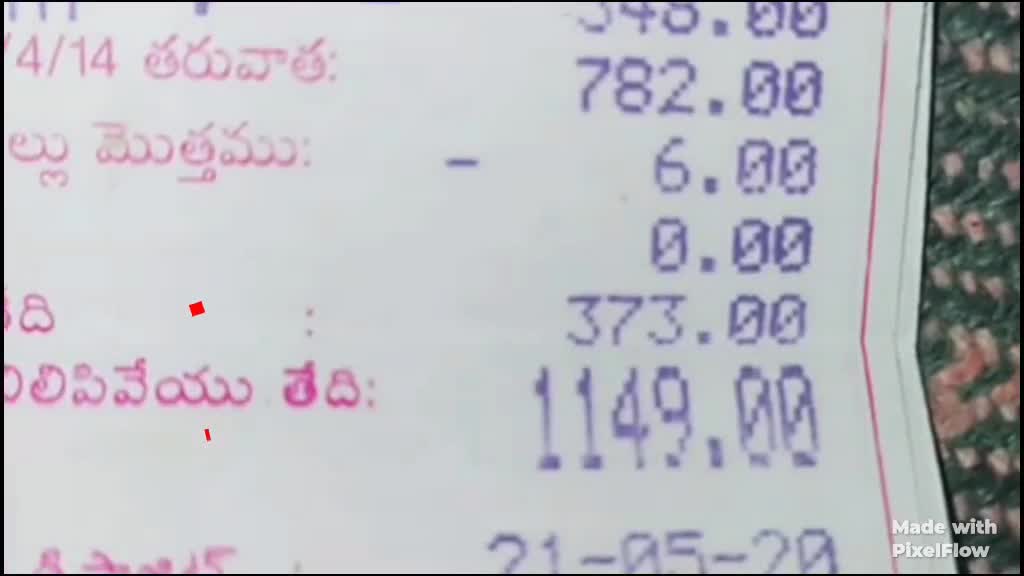 348.00
/4/14 తరువాత: 782.00
ల్లు మొత్తము: - 6.00
0.00
: 373.00
నిలిపివేయు తేది: 1149.00
21-05-20
Made with
PixelFlow